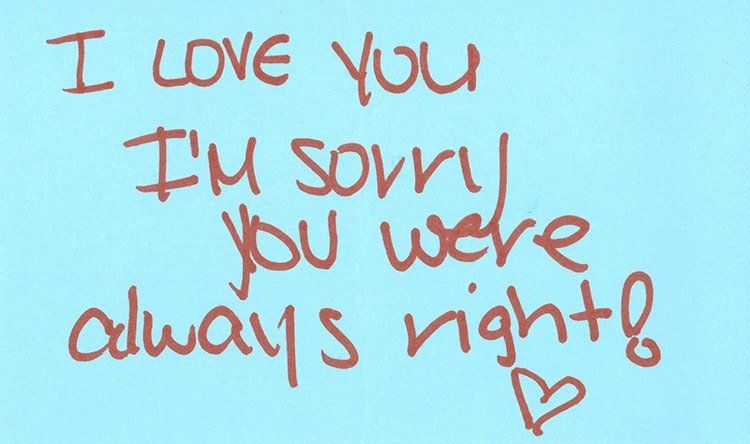 I LOVE YOU
I'M SORRY
YOU WERE
always right!